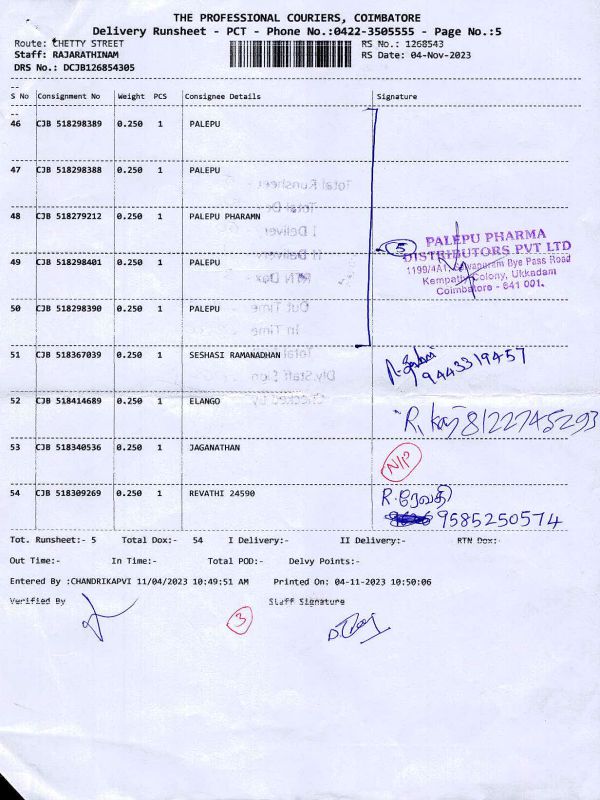 THE PROFESSIONAL COURIERS, COIMBATORE
Delivery Runsheet - PCT - Phone No.:0422-3505555 - Page No.:5
Route: CHETTY STREET RS No.: 1268543
Staff: RAJARATHINAM RS Date: 04-Nov-2023
DRS No.: DCJB126854305
S No Consignment No Weight PCS Consignee Details Signature
46 CJB 518298389 0.250 1 PALEPU
47 CJB 518298388 0.250 1 PALEPU
Total Runsheet:-
48 CJB 518279212 0.250 1 PALEPU PHARAMN
I Delivery
5
PALEPU PHARMA
DISTRIBUTORS PVT LTD
49 CJB 518298401 0.250 1 PALEPU
1199/4A1, Bye Pass Road
Kempatty Colony, Ukkadam
Coimbatore - 641 001.
50 CJB 518298390 0.250 1 PALEPU
Out Time
In Time
51 CJB 518367039 0.250 1 SESHASI RAMANADHAN
9443319457
52 CJB 518414689 0.250 1 ELANGO
8122745293
53 CJB 518340536 0.250 1 JAGANATHAN
N/P
54 CJB 518309269 0.250 1 REVATHI 24590
R. ரேவதி
9585250574
Tot. Runsheet:- 5 Total Dox:- 54 I Delivery:- II Delivery:- RTN Dox:-
Out Time:- In Time:- Total POD:- Delvy Points:-
Entered By :CHANDRIKAPVI 11/04/2023 10:49:51 AM Printed On: 04-11-2023 10:50:06
Verified By Staff Signature
3